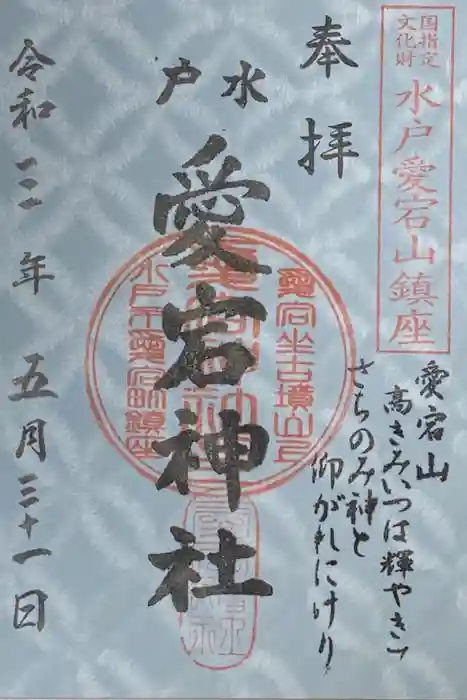 国指定
文化財
水戸愛宕山鎮座
奉拝
愛宕山
高きみいつは輝やきて
さちのみ神と
仰がれにけり
水戸
愛宕神社
愛宕坐古墳山上
水戸市愛宕町鎮座
令和三年五月三十一日